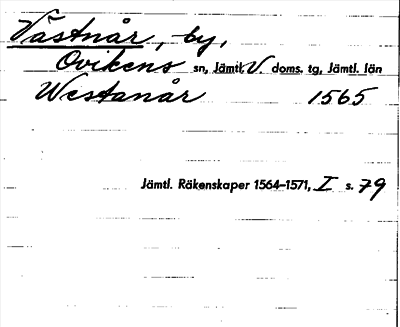 Västnår, by,
Ovikens sn, Jämtl. V. doms. tg, Jämtl. län
Westanår 1565
Jämtl. Räkenskaper 1564–1571, I s. 79